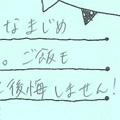 なまじめ
。ご飯も
後悔しません!